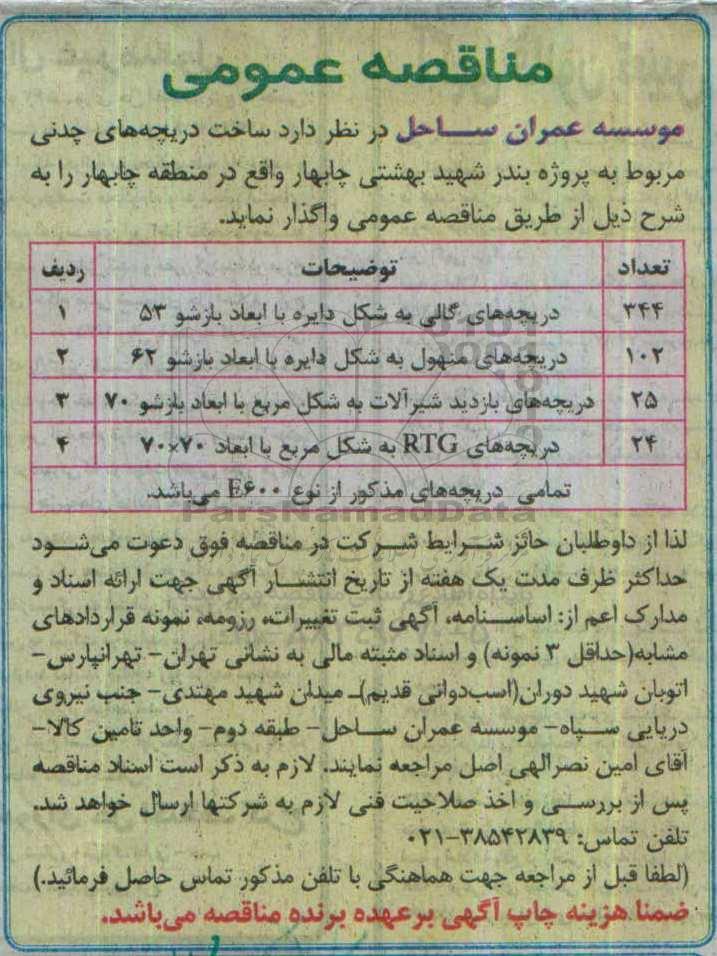 مناقصه عمومی
موسسه عمران ساحل در نظر دارد ساخت دریچه‌های چدنی
مربوط به پروژه بندر شهید بهشتی چابهار واقع در منطقه چابهار را به
شرح ذیل از طریق مناقصه عمومی واگذار نماید.
تعداد توضیحات ردیف
۳۴۴ دریچه‌های گالی به شکل دایره با ابعاد بازشو ۵۳ ۱
۱۰۲ دریچه‌های منهول به شکل دایره با ابعاد بازشو ۶۲ ۲
۲۵ دریچه‌های بازدید شیرآلات به شکل مربع با ابعاد بازشو ۷۰ ۳
۲۴ دریچه‌های RTG به شکل مربع با ابعاد ۷۰×۷۰ ۴
تمامی دریچه‌های مذکور از نوع E۶۰۰ می‌باشد.
ParsNamadData
لذا از داوطلبان حائز شرایط شرکت در مناقصه فوق دعوت می‌شود
حداکثر ظرف مدت یک هفته از تاریخ انتشار آگهی جهت ارائه اسناد و
مدارک اعم از: اساسنامه، آگهی ثبت تغییرات، رزومه، نمونه قراردادهای
مشابه(حداقل ۳ نمونه) و اسناد مثبته مالی به نشانی تهران- تهرانپارس-
اتوبان شهید دوران(اسب‌دوانی قدیم)ـ میدان شهید مهتدی- جنب نیروی
دریایی سپاه- موسسه عمران ساحل- طبقه دوم- واحد تامین کالا-
آقای امین نصرالهی اصل مراجعه نمایند. لازم به ذکر است اسناد مناقصه
پس از بررسی و اخذ صلاحیت فنی لازم به شرکتها ارسال خواهد شد.
تلفن تماس: ۳۸۵۴۲۸۳۹-۰۲۱
(لطفا قبل از مراجعه جهت هماهنگی با تلفن مذکور تماس حاصل فرمائید.)
ضمنا هزینه چاپ آگهی برعهده برنده مناقصه می‌باشد.